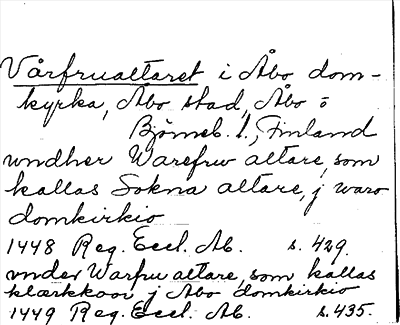 Vårfrualtaret i Åbo dom-
kyrka, Åbo stad, Åbo o
Björneb. l., Finland
vndher Warefrw altare, som
kallas Sokna altare, j waro
domkirkio
1448 Reg. Eccl. Ab. s. 429.
vnder Warfru altare, som kallas
klærkkoor j Abo domkirkio
1449 Reg. Ecc. Ab. s. 435.